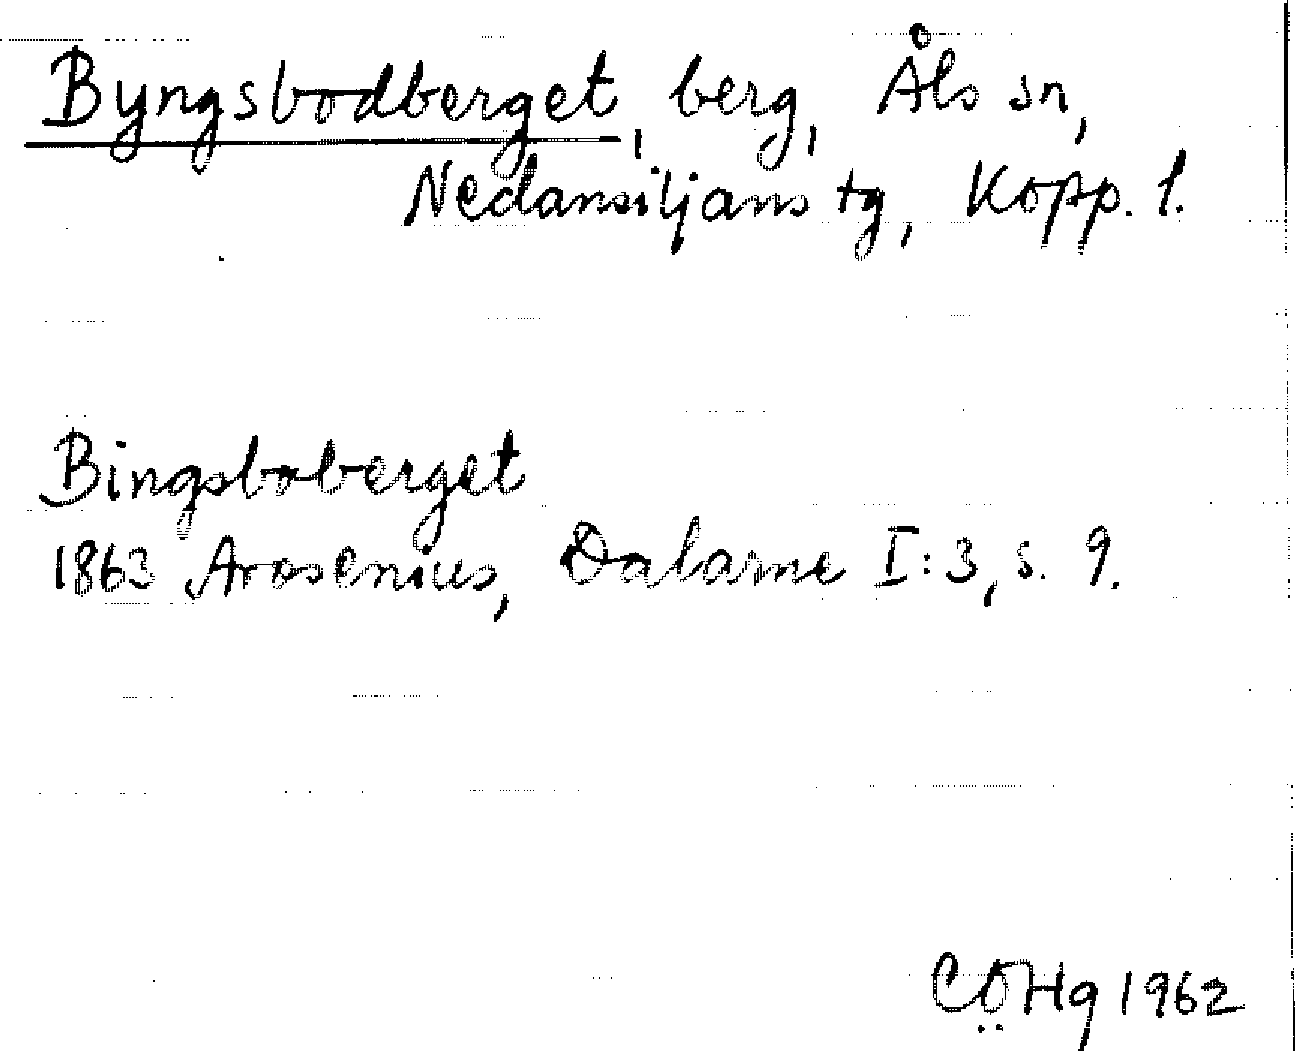 Byngsbodberget, berg, Åls sn,
Nedansiljans tg, Kopp. l.
Bingsboberget
1863 Arosenius, Dalarne I:3, s. 9.
CÖHg 1962